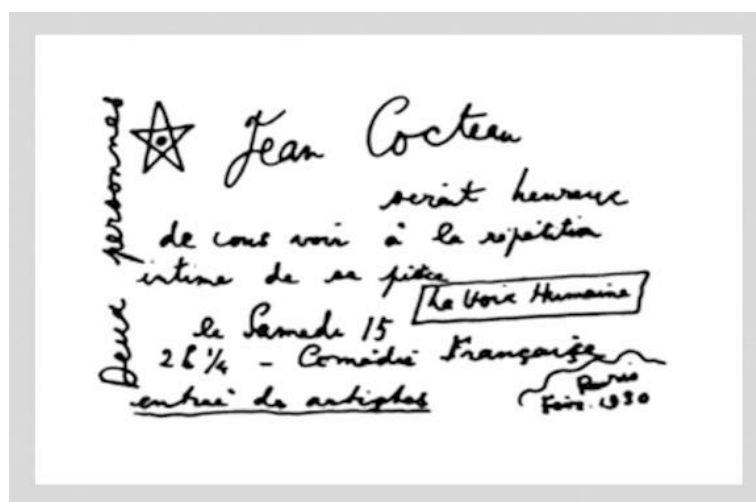 Deux personnes
Jean Cocteau
serait heureux
de vous voir à la répétition
intime de sa pièce
La Voix Humaine
le Samedi 15
2 h 1/4 - Comédie Française
entrée des artistes
Paris
Fév. 1930